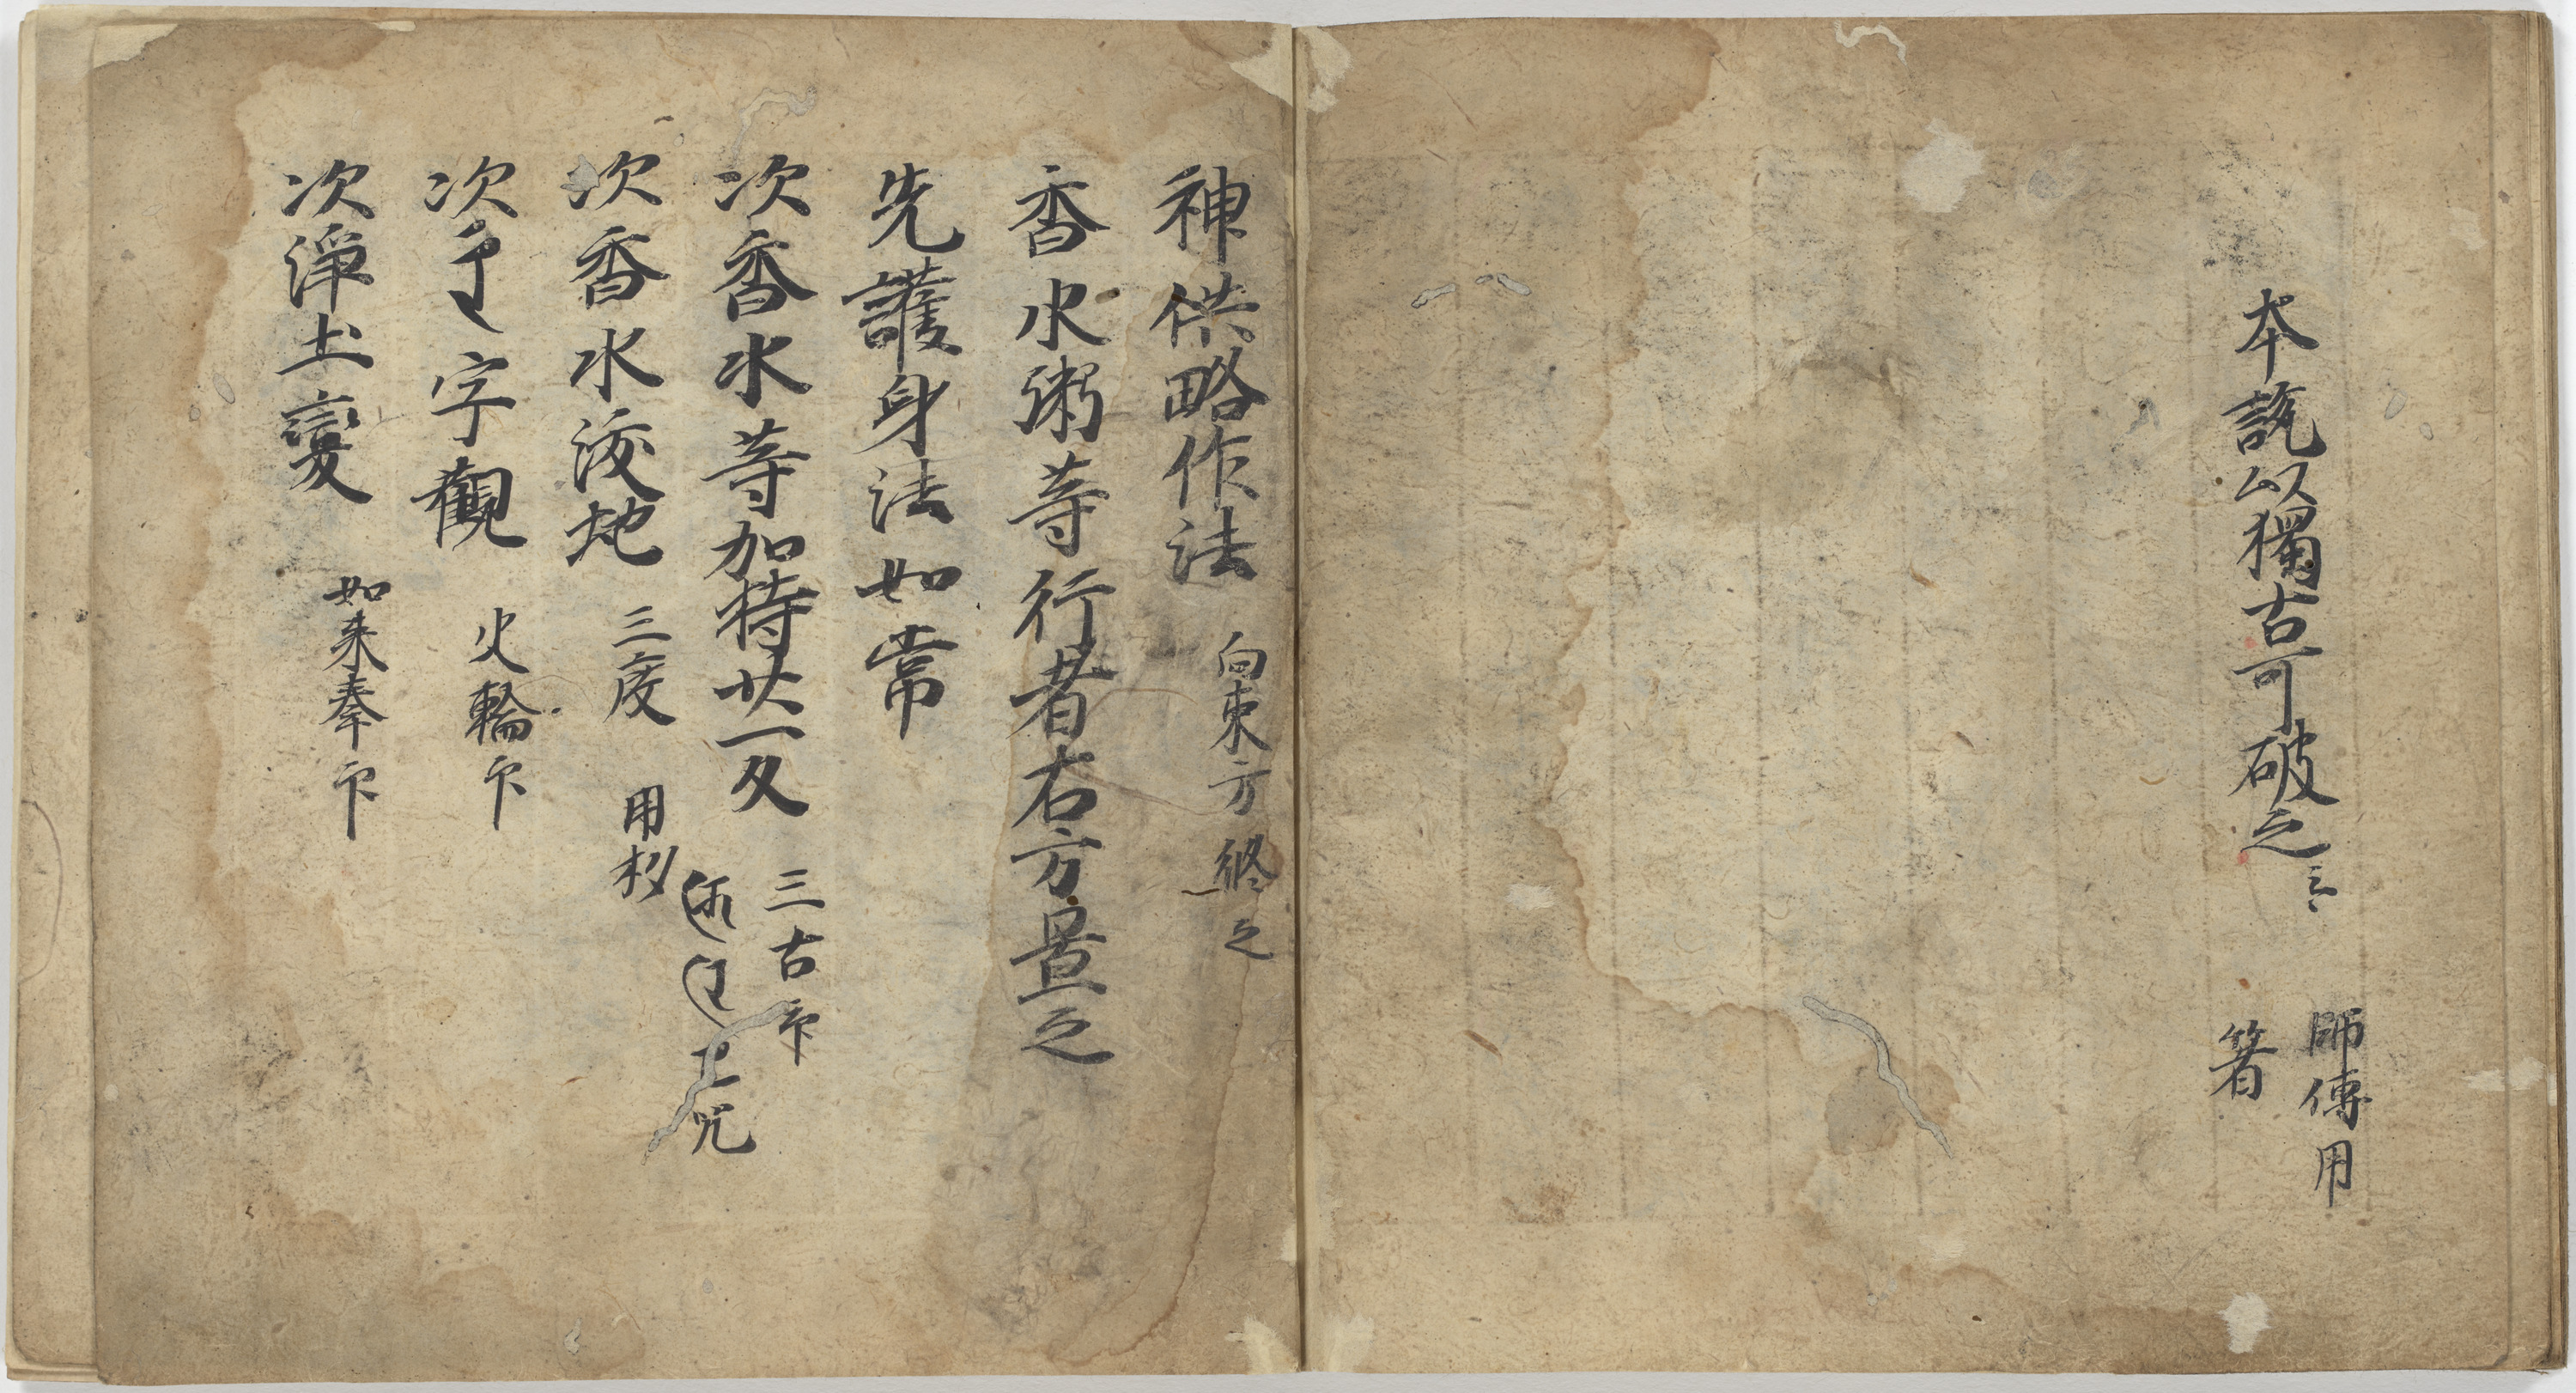 本説以獨古可破之云云
師傳用
箸
神供略作法 向東方終之
香水粥等行者右方置之
先護身法如常
次香水等加持廿一反 三古印
呪
次香水洒地 三度 用杉
次字觀 火輪印
次淨土變 如来拳印